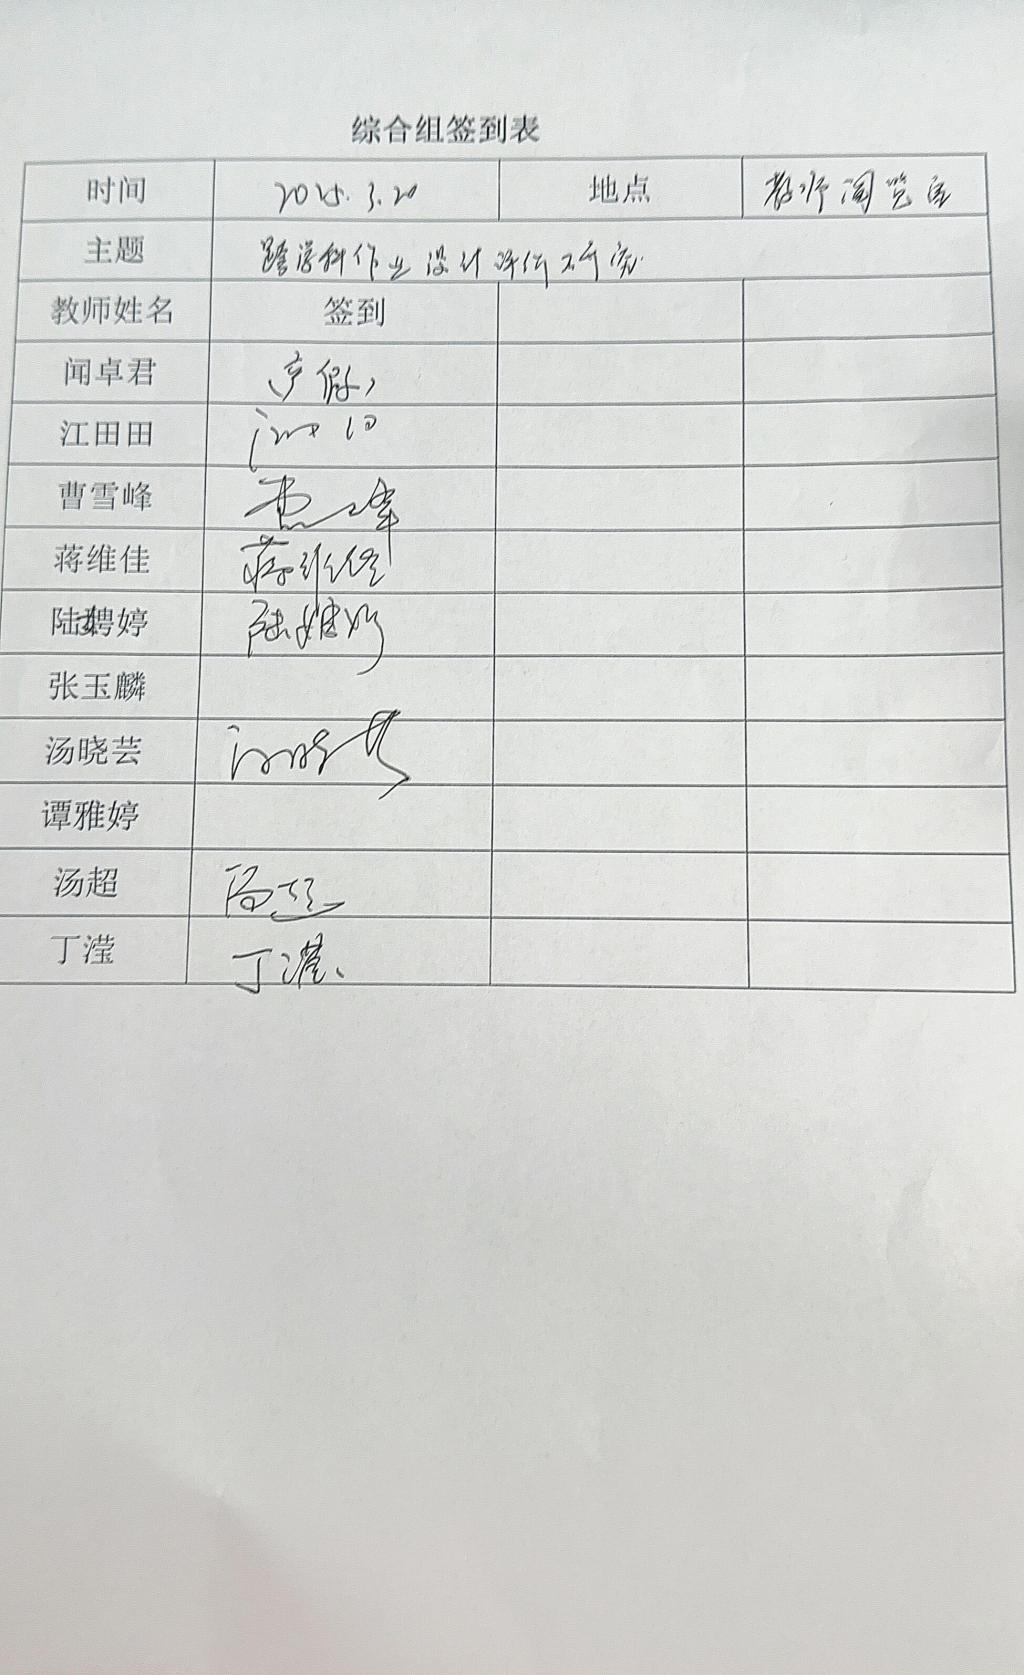 综合组签到表
时间 2025.3.20 地点 教师阅览室
主题 跨学科作业设计评价研究
教师姓名 签到
闻卓君 产假
江田田
曹雪峰
蒋维佳 蒋维佳
陆娉婷 陆娉婷
张玉麟
汤晓芸 汤晓芸
谭雅婷
汤超 汤超
丁滢 丁滢